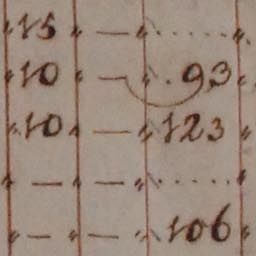 „ 15 „ — „ ...... „
„ 10 „ — „ . 93 „
„ 10 „ — „ 123 „
„ — „ — „ ...... „
„ — „ — „ 106 „